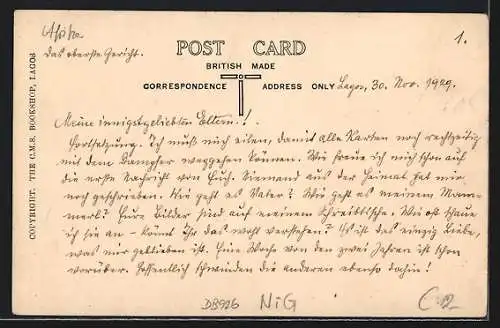 Afrika
das oberste Gericht.
1.
POST CARD
BRITISH MADE
CORRESPONDENCE ADDRESS ONLY
Lagos, 30. Nov. 1929.
COPYRIGHT. THE C.M.S. BOOKSHOP, LAGOS
Meine innigstgeliebten Eltern!
Fortsetzung. Ich muß mich eilen, damit alle Karten noch rechtzeitig
mit dem Dampfer weggehen können. Wie freue ich mich schon auf
die erste Nachricht von Euch. Niemand aus der Heimat hat mir
noch geschrieben. Wie geht es Vater? Wie geht es meinem Mamm-
merl? Eure Bilder sind auf meinem Schreibtische. Wie oft schaue
ich sie an - könnt Ihr das wohl verstehen? Es ist das einzig Liebe,
was mir geblieben ist. Eine Woche von den zwei Jahren ist schon
vorüber. Hoffentlich schwinden die anderen ebenso dahin!
DB926 NiG